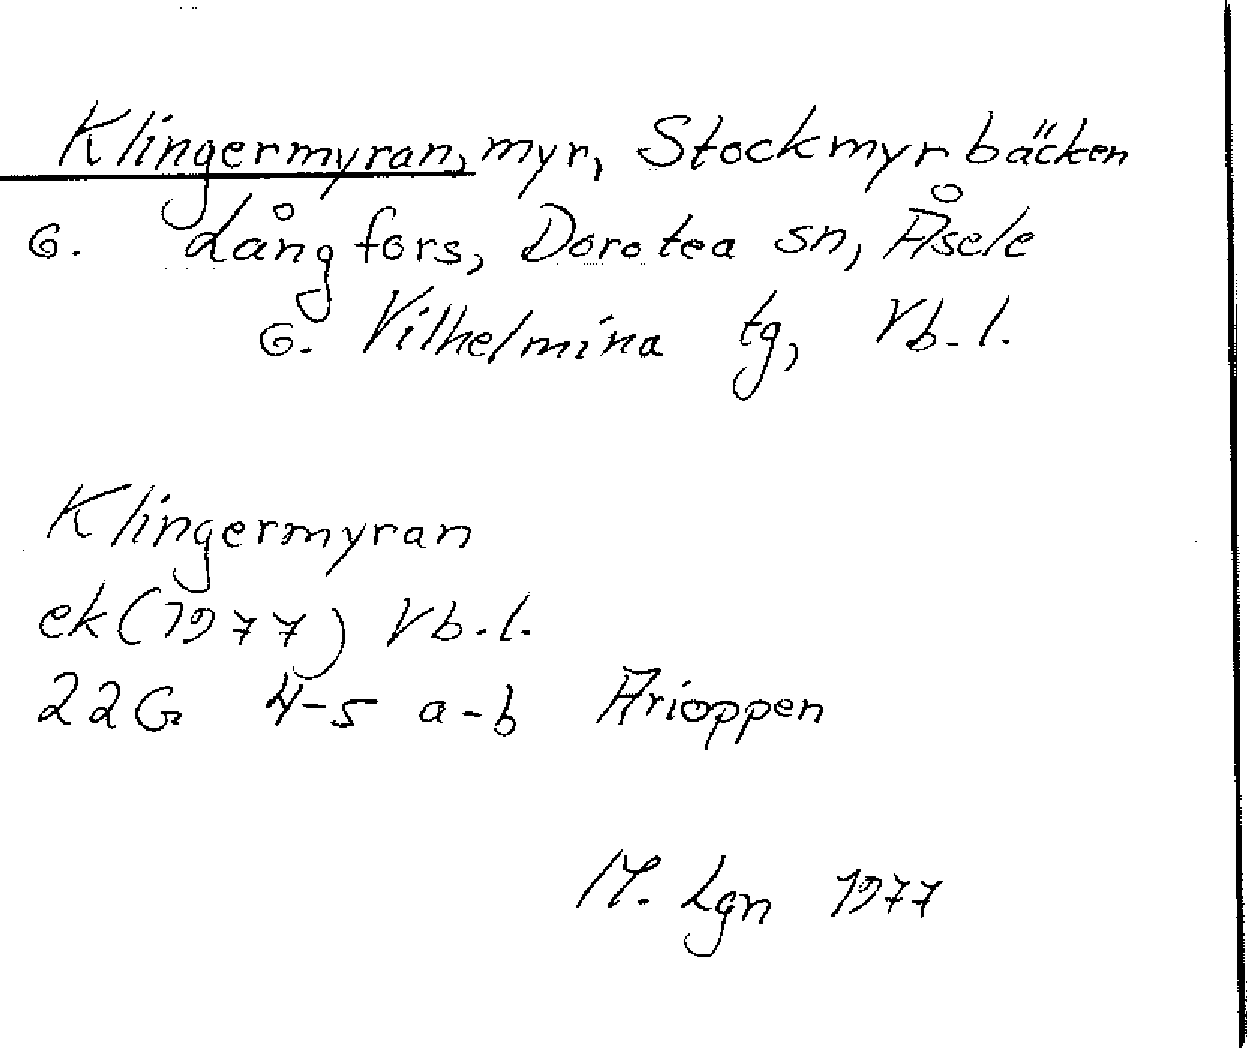 Klingermyran, myr, Stockmyrbäcken
o. Långfors, Dorotea sn, Åsele
o. Vilhelmina tg, Vb. l.
Klingermyran
ek (1977) Vb. l.
22G 4-5 a-b Arioppen
M. Lgn 1977